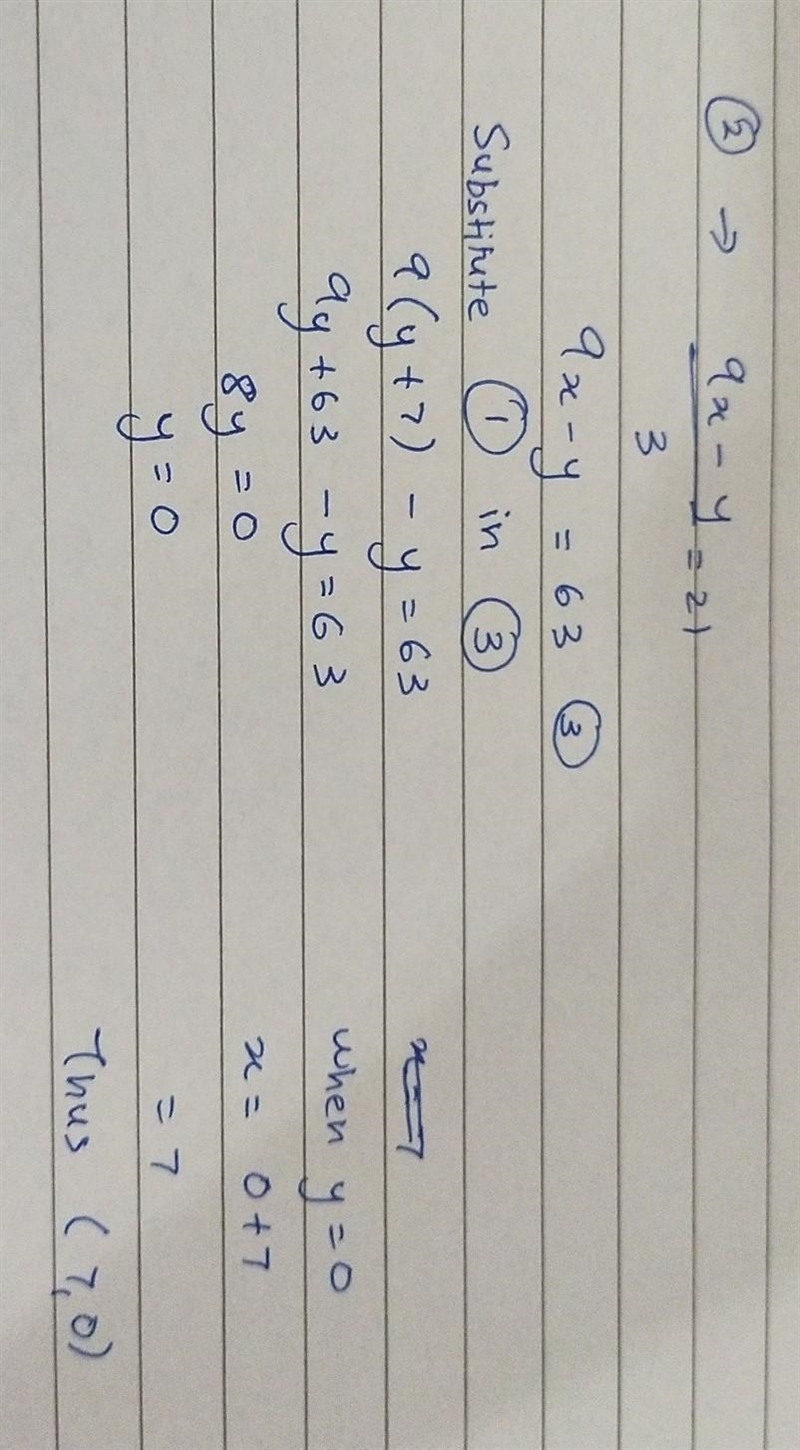 ② → 9x - y = 21
3
9x - y = 63 ③
Substitute ① in ③
9(y+7) - y = 63
9y + 63 - y = 63
8y = 0
y = 0
when y = 0
x = 0 + 7
= 7
Thus (7,0)